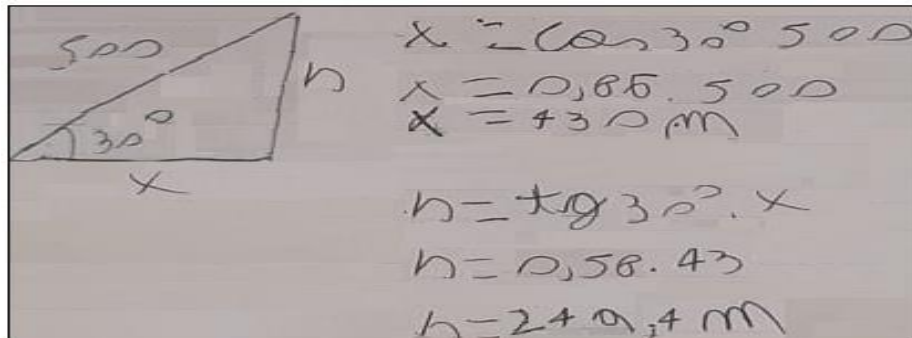 500
h
30°
x
x = Cos 30° 500
x = 0,86. 500
x = 430 m
h = tg 30°. x
h = 0,58. 43
h = 249,4 m